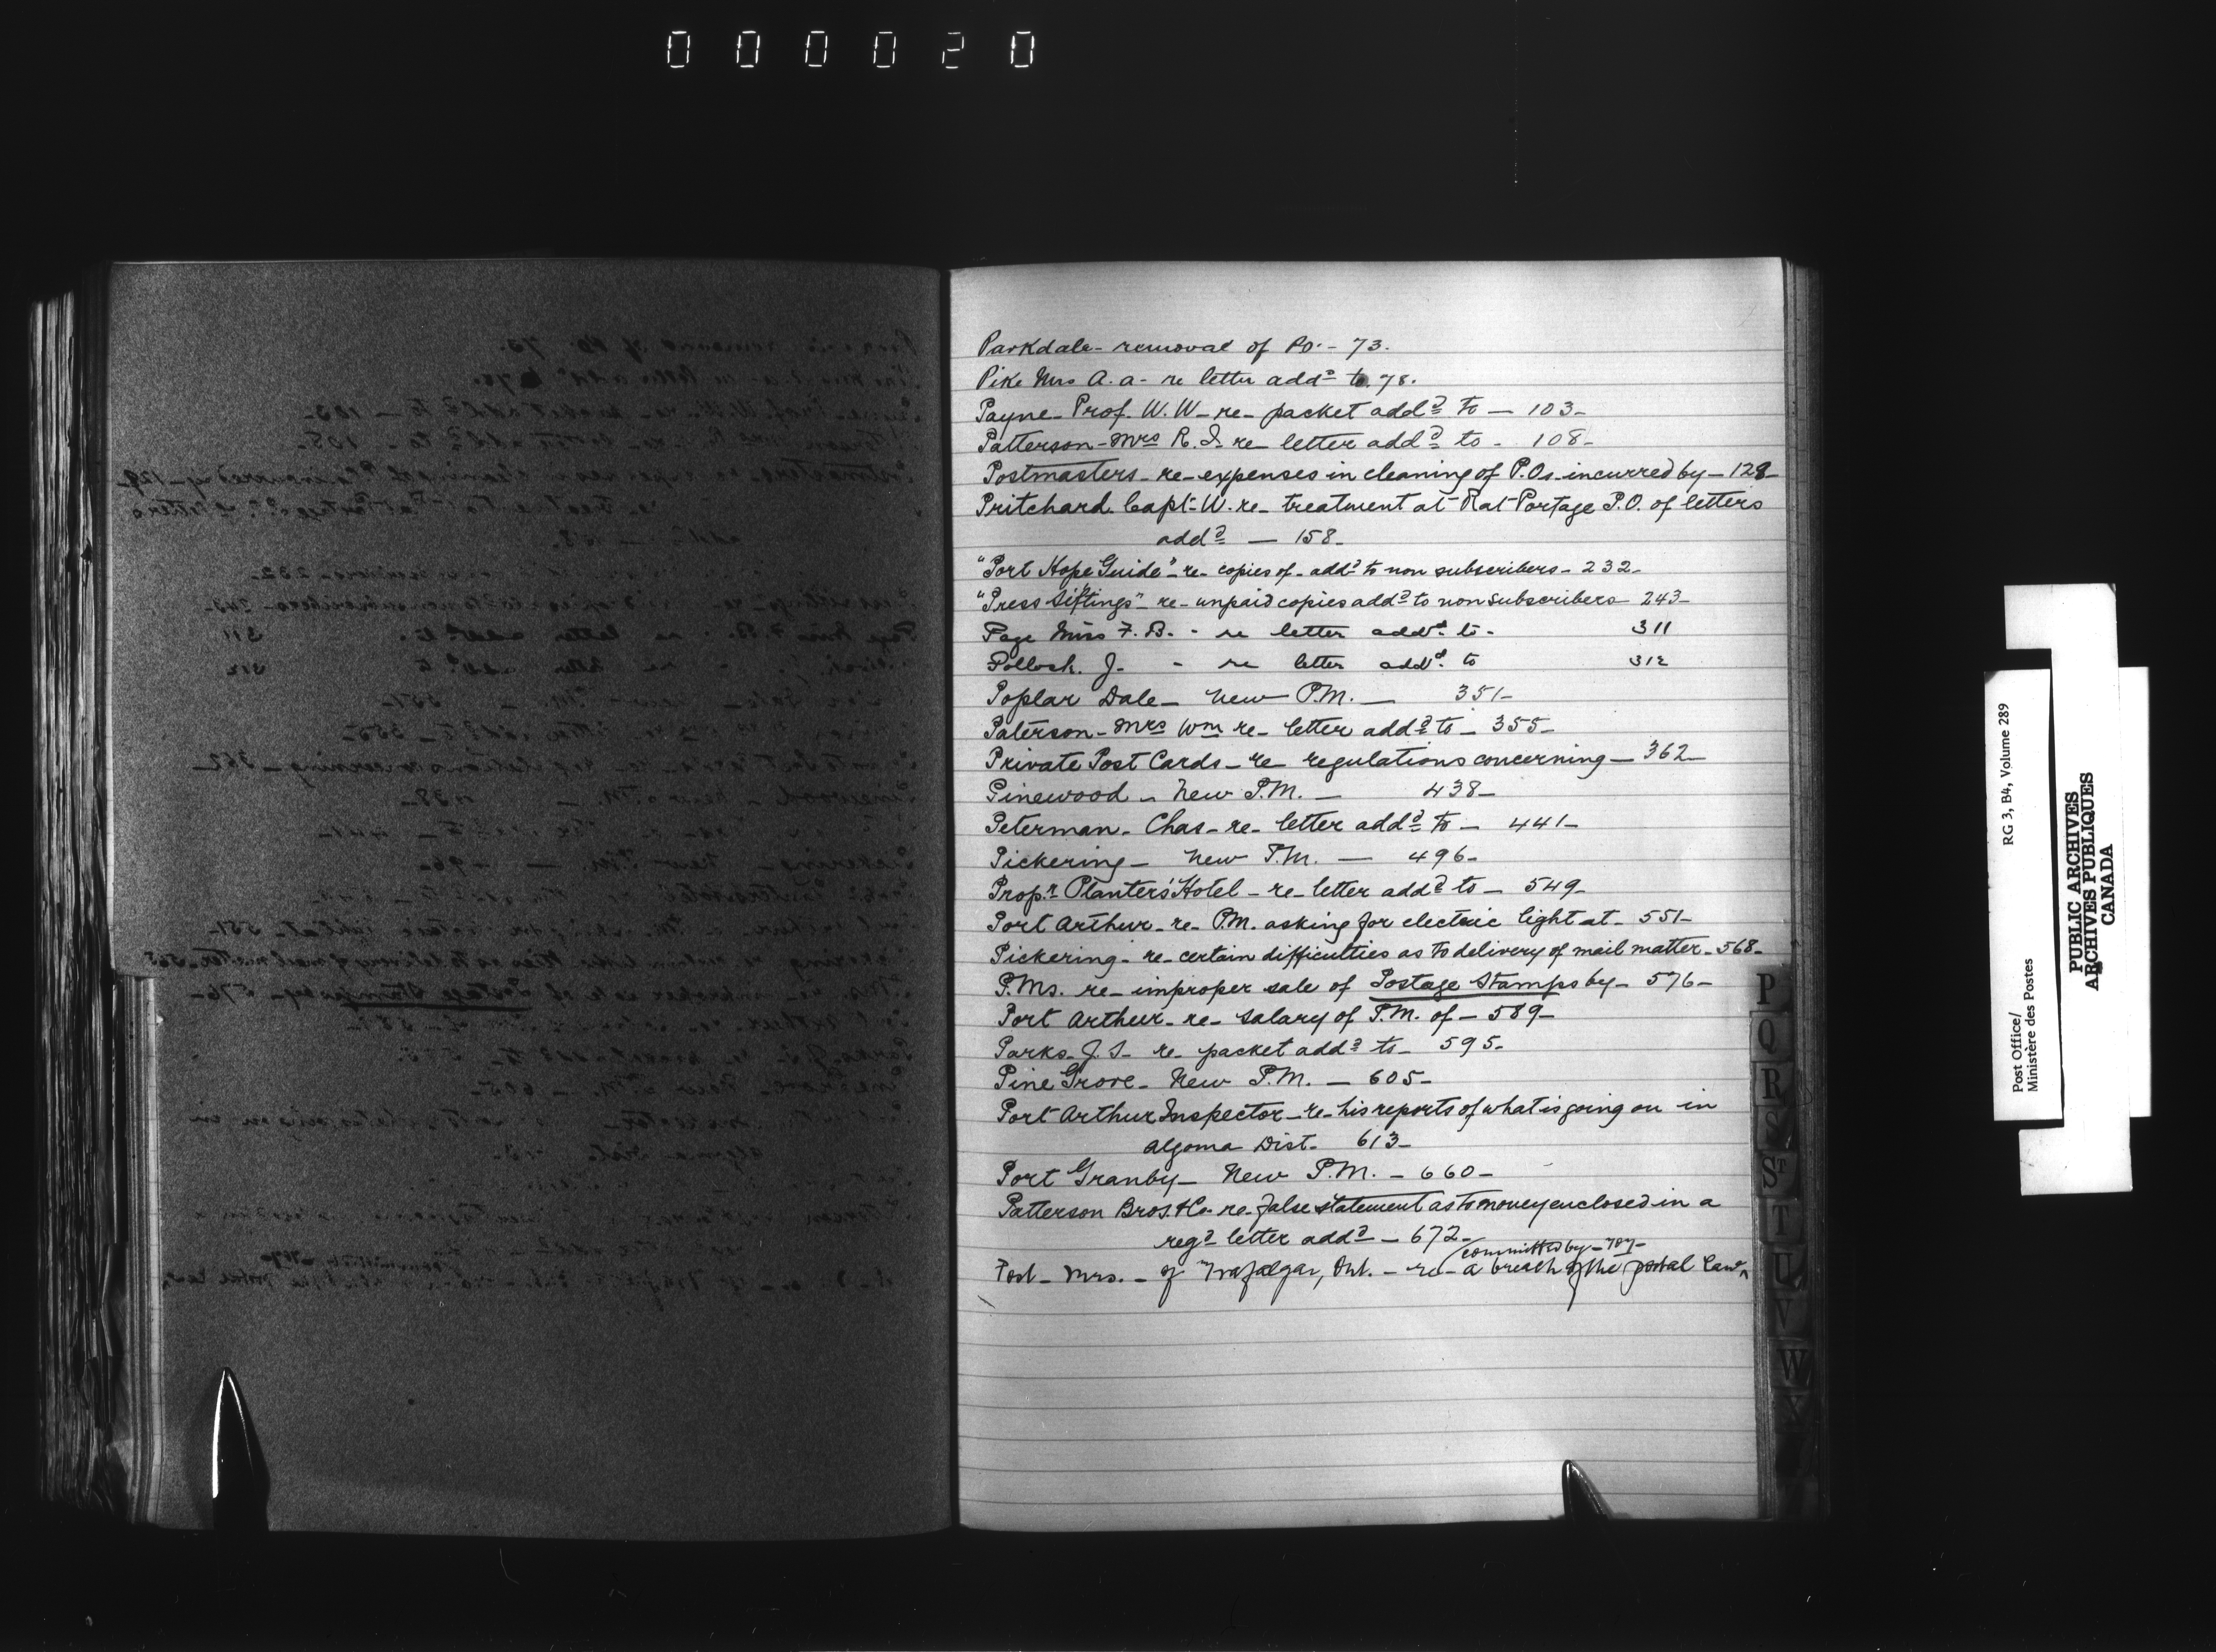 000020
Parkdale - removal of P.O. - 73.
Pike Mrs A. A - re letter addd to. 78.
Payne - Prof. W. W - re - packet addd to - 103 -
Patterson - Mrs R. J. re - letter addd to - 108 -
Postmasters - re - expenses in cleaning of P.Os. incurred by - 128 -
Pritchard. Capt. W. re - treatment at Rat Portage P.O. of letters
addd - 158 -
"Port Hope Guide" - re - copies of - addd to non subscribers - 232 -
"Press Siftings" - re - unpaid copies addd to non subscribers - 243 -
Page Miss F. B. - re letter addd to - 311
Pollock. J. - re letter addd to 312
Poplar Dale - New P.M. - 351 -
Paterson - Mrs Wm re - letter addd to - 355 -
Private Post Cards - re regulations concerning - 362 -
Pinewood - New P.M. - 438 -
Peterman - Chas - re - letter addd to - 441 -
Pickering - New P.M. - 496 -
Propr Planters' Hotel - re - letter addd to - 549 -
Port Arthur - re - P.M. asking for electric light at - 551 -
Pickering - re - certain difficulties as to delivery of mail matter - 568 -
P.Ms. re - improper sale of Postage Stamps by - 576 -
Port Arthur - re - salary of P.M. of - 589 -
Parks - J. S - re - packet addd to - 595 -
Pine Grove - New P.M. - 605 -
Port Arthur Inspector - re - his reports of what is going on in
Algoma Dist. 613 -
Port Granby - New P.M. - 660 -
Patterson Bros. & Co - re - false statement as to money enclosed in a
regd letter addd - 672 -
committed by - 707 -
Post - Mrs. - of Trafalgar, Ont. - re - a breach of the postal law ^
P
Q
R
S
ST
T
U
V
W
Y
Post Office/
Ministère des Postes
RG 3, B4, Volume 289
PUBLIC ARCHIVES
ARCHIVES PUBLIQUES
CANADA